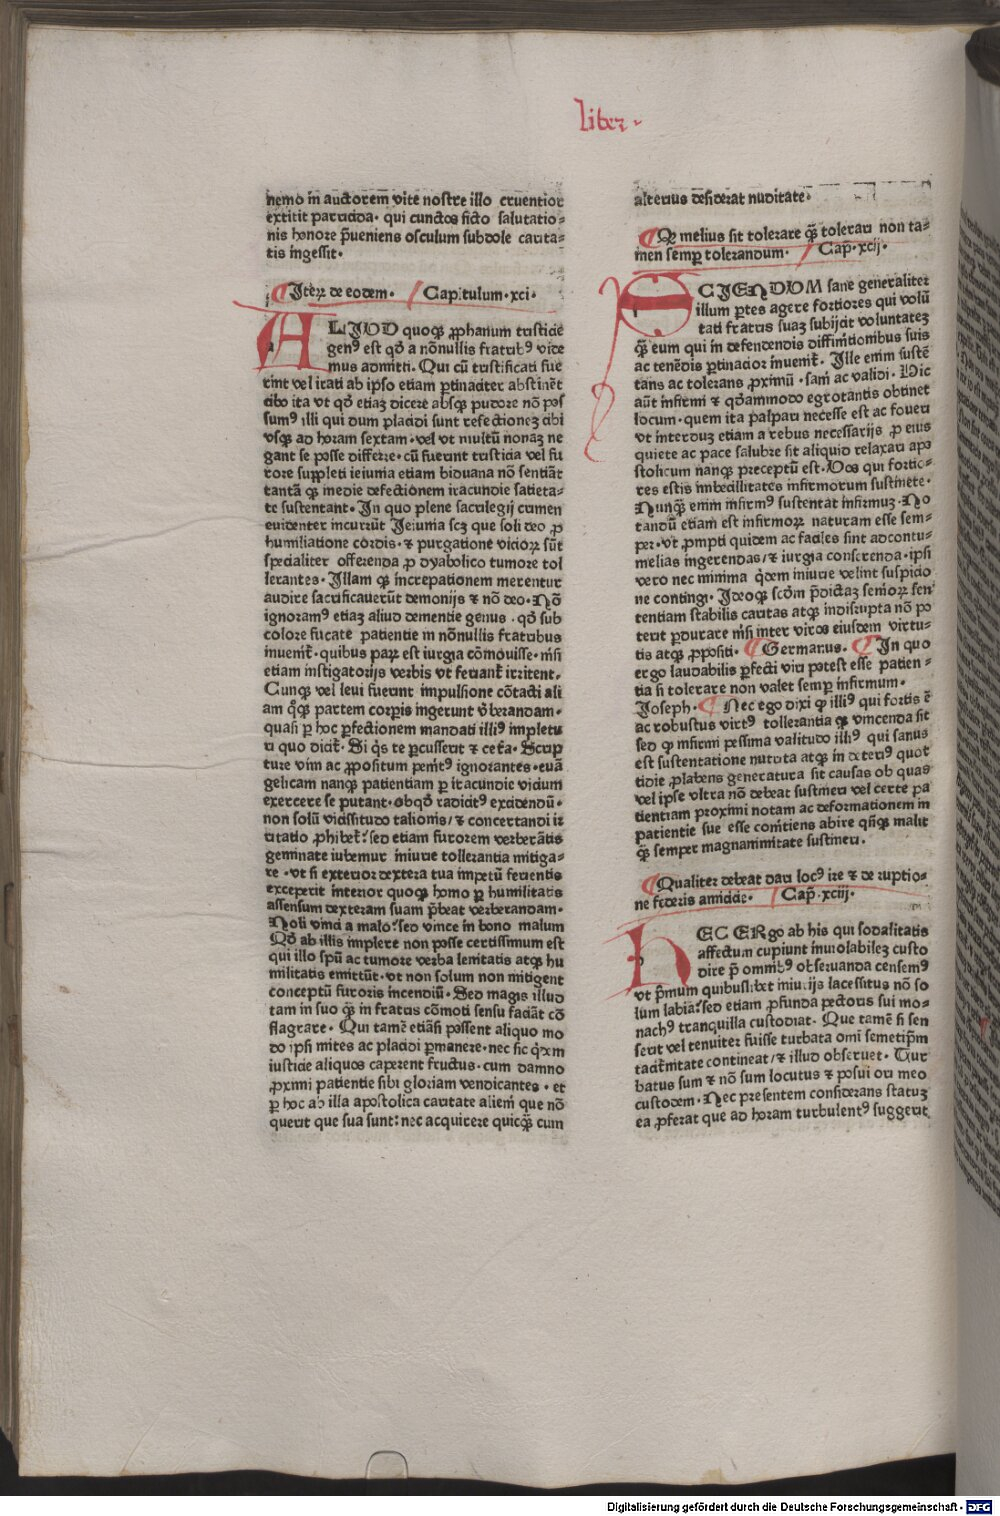 liber ·
nemo in auctorem vite nostre illo cruentior
extitit parricida· qui cunctos ficto salutatio⸗
nis honore p̄ueniens osculum subdole carita⸗
tis ingessit·
¶ Itеꝝ de eodem· Capitulum·xci·
ALIVD quoqꝫ ꝓphanum tristicie
genꝰ est qd̓ a nōnullis fratribꝰ vide
mus admitti· Qui cū tristificati fue
rint vel irati ab ipso etiam ꝑtinaciter abstinēt
cibo ita vt qd̓ etiaꝫ dicere absqꝫ pudore nō pos
sumꝰ illi qui dum placidi sunt refectioneꝫ cibi
vsqꝫ ad horam sextam·vel vt multū nonaꝫ ne
gant se posse differre·cū fuerint tristicia vel fu
rore suppleti ieiunia etiam biduana nō sentiāt
tantā qꝫ inedie defectionem iracundie satieta⸗
te sustentant· In quo plene sacrilegij crimen
euidenter incurrūt Ieiunia scꝫ que soli deo ꝓ
humiliatione cordis·⁊ purgatione vicioꝝ sūt
specialiter offerenda ꝓ dyabolico tumore tol
lerantes· Illam qꝫ increpationem merentur
audire sacrificauerūt demonijs ⁊ nō deo·Nō
ignoramꝰ etiaꝫ aliud dementie genus · qd̓ sub
colore fucate patientie in nōnullis fratribus
inuenit̄· quibus paꝝ est iurgia cōmouisse· nisi
etiam instigatorijs verbis vt feriant̄ irritent·
Cunqꝫ vel leui fuerint impulsione cōtacti ali
am q̄qꝫ partem corꝑis ingerunt v̓berandam·
quasi ꝑ hoc ꝑfectionem mandati illiꝰ impletu
ri quo dicit̄· Si q̄s te ꝑcusserit ⁊ cet̄a· Scrip
ture vim ac ꝓpositum penitꝰ ignorantes·euā
gelicam nanqꝫ patientiam ꝑ iracundie vicium
exercere se putant·ob qd̓ radicitꝰ excidendū·
non solū vicissitudo talionis/⁊ concertandi ir
ritatio ꝓhibet̄:sed etiam furorem verberātis
geminate iubemur iniurie tollerantia mitiga⸗
re · vt si exterior dextera tua impetū ferientis
exceperit interior quoqꝫ homo ꝑ humilitatis
assensum dexteram suam p̄beat verberandam·
Noli vinci a malo:sed vince in bono malum
Qd̓ ab illis implere non posse certissimum est
qui illo spū ac tumore verba lenitatis atqꝫ hu
militatis emittūt·vt non solum non mitigent
conceptū furoris incendiū· Sed magis illud
tam in suo qꝫ in fratris cōmoti sensu faciāt cō
flagrare· Qui tamē etiāsi possent aliquo mo
do ipsi mites ac placidi ꝑmanere·nec sic q̄xm
iusticie aliquos caperent fructus·cum damno
ꝓximi patientie sibi gloriam vendicantes · et
ꝑ hoc ab illa apostolica caritate alieni que nō
querit que sua sunt:nec acquirere quicqꝫ cum
alterius desiderat nuditate·
¶ Qꝫ melius sit tolerare qꝫ tolerari non ta⸗
men semꝑ tolerandum· Cap̄·xcij·
SCIENDVM sane generaliter
illum ꝑtes agere fortiores qui volū
tati fratris suaꝫ subijcit voluntateꝫ
qꝫ eum qui in defendendis diffinitionibus suis
ac tenēdis ꝑtinacior inuenit̄· Ille enim sustē
tans ac tolerans ꝓximū · sani ac validi · Hic
aūt infirmi ⁊ qd̓ammodo egrotantis obtinet
locum·quem ita palpari necesse est ac foueri
vt interduꝫ etiam a rebus necessarijs ꝓ eius
quiete ac pace salubre sit aliquid relaxari apo
stolicum nanqꝫ preceptū est·Vos qui fortio⸗
res estis imbecillitates infirmorum sustinete·
Nunqꝫ enim infirmꝰ sustentat infirmuꝫ·No
tandū etiam est infirmoꝝ naturam esse sem⸗
per·vt ꝓmpti quidem ac faciles sint ad contu⸗
melias ingerendas/⁊ iurgia conserenda·ipsi
vero nec minima q̄dem iniurie velint suspicio
ne contingi· Ideoqꝫ scd̓m p̄dictaꝫ senioꝝ sen
tentiam stabilis caritas atqꝫ indisrupta nō po
terit ꝑdurare nisi inter viros eiusdem virtu⸗
tis atqꝫ ꝓpositi· ¶ Germanus· ¶ In quo
ergo laudabilis ꝑfecti viri potest esse patien⸗
tia si tolerare non valet semꝑ infirmum·
Joseph· ¶ Nec ego dixi ꝙ illiꝰ qui fortis ē
ac robustus virtꝰ tollerantia qꝫ vincenda sit
sed ꝙ infirmi pessima valitudo illiꝰ qui sanus
est sustentatione nutrita atqꝫ in deteriꝰ quot
tidie ꝓlabens generatura sit causas ob quas
vel ipse vltra nō debeat sustineri vel certe pa
tientiam proximi notam ac deformationem in
patientie sue esse cōnitiens abire qn̄qꝫ malit
qꝫ semper magnanimitate sustineri·
¶ Qualiter debeat dari locꝰ ire ⁊ de ruptio⸗
ne federis amicicie· Cap̄·xciij·
HEC ERgo ab his qui sodalitatis
affectum cupiunt inuiolabileꝫ custo
dire p̄ omnibꝰ obseruanda censemꝰ
vt p̄mum quibuslibet iniurijs lacessitus nō so
lum labia:sed etiam ꝓfunda pectoris sui mo⸗
nachꝰ tranquilla custodiat· Que tamē si sen
serit vel tenuiter fuisse turbata om̄i semetip̄m
taciturnitate contineat/⁊ illud obseruet· Tur
batus sum ⁊ nō sum locutus ⁊ posui ori meo
custodem·Nec presentem considerans statuꝫ
ea ꝓferat que ad horam turbulentꝰ suggerit
Digitalisierung gefördert durch die Deutsche Forschungsgemeinschaft · DFG